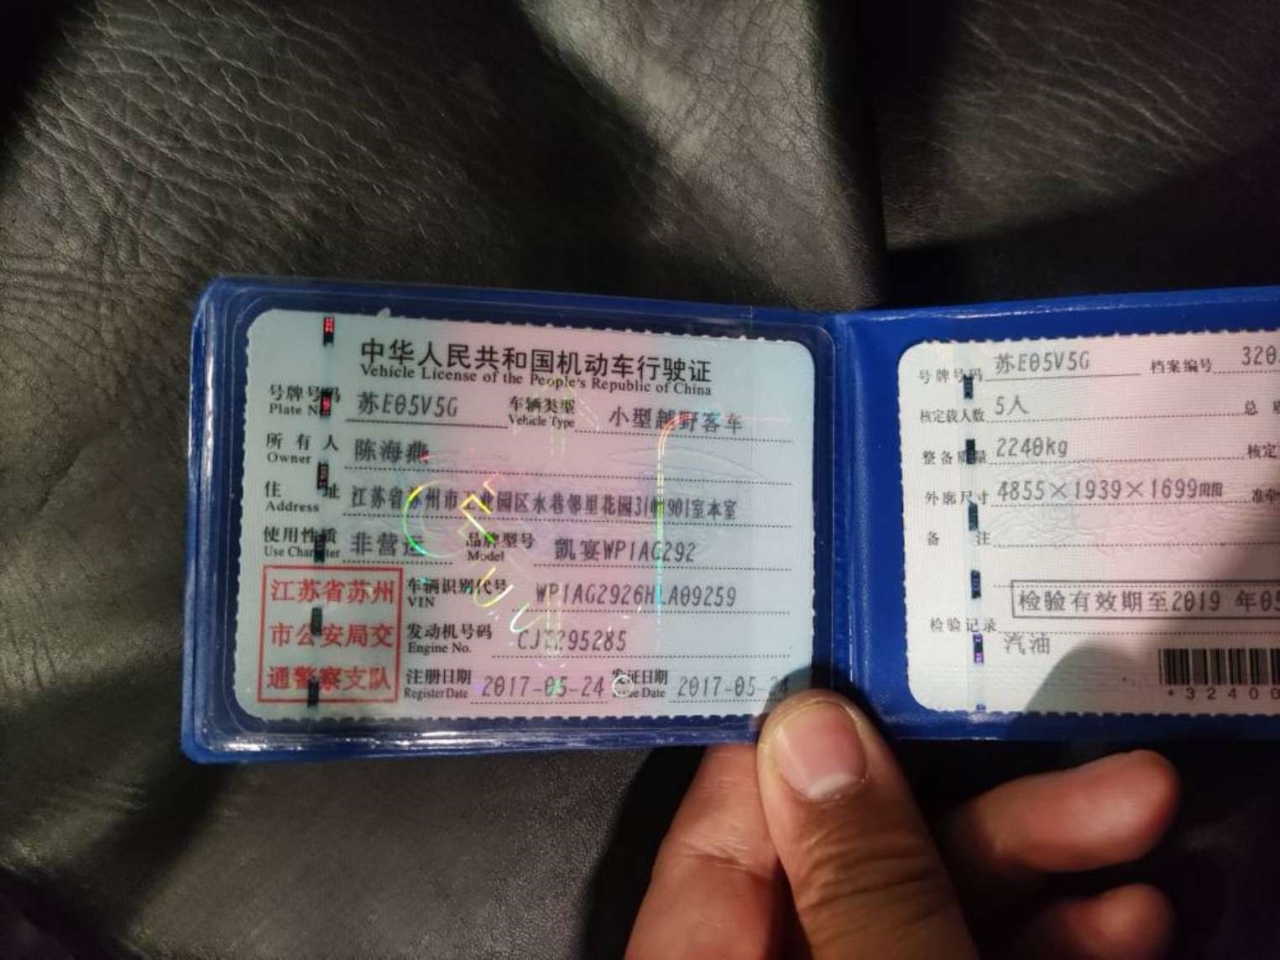 中华人民共和国机动车行驶证
Vehicle License of the People's Republic of China
号牌号码 苏E05V5G 车辆类型 小型越野客车
Plate No. Vehicle Type
所有人 陈海燕
Owner
住址 江苏省苏州市工业园区水巷邻里花园31幢901室本室
Address
使用性质 非营运 品牌型号 凯宴WP1AG292
Use Character Model
江苏省苏州
市公安局交
通警察支队
车辆识别代号 WP1AG2926HLA09259
VIN
发动机号码 CJT295285
Engine No.
注册日期 2017-05-24 发证日期 2017-05-24
Register Date Issue Date
号牌号码 苏E05V5G 档案编号 320
核定载人数 5人 总
整备质量 2240kg 核定
外廓尺寸 4855×1939×1699mm 准牵
备注
检验有效期至2019 年0
检验记录
汽油
*32400